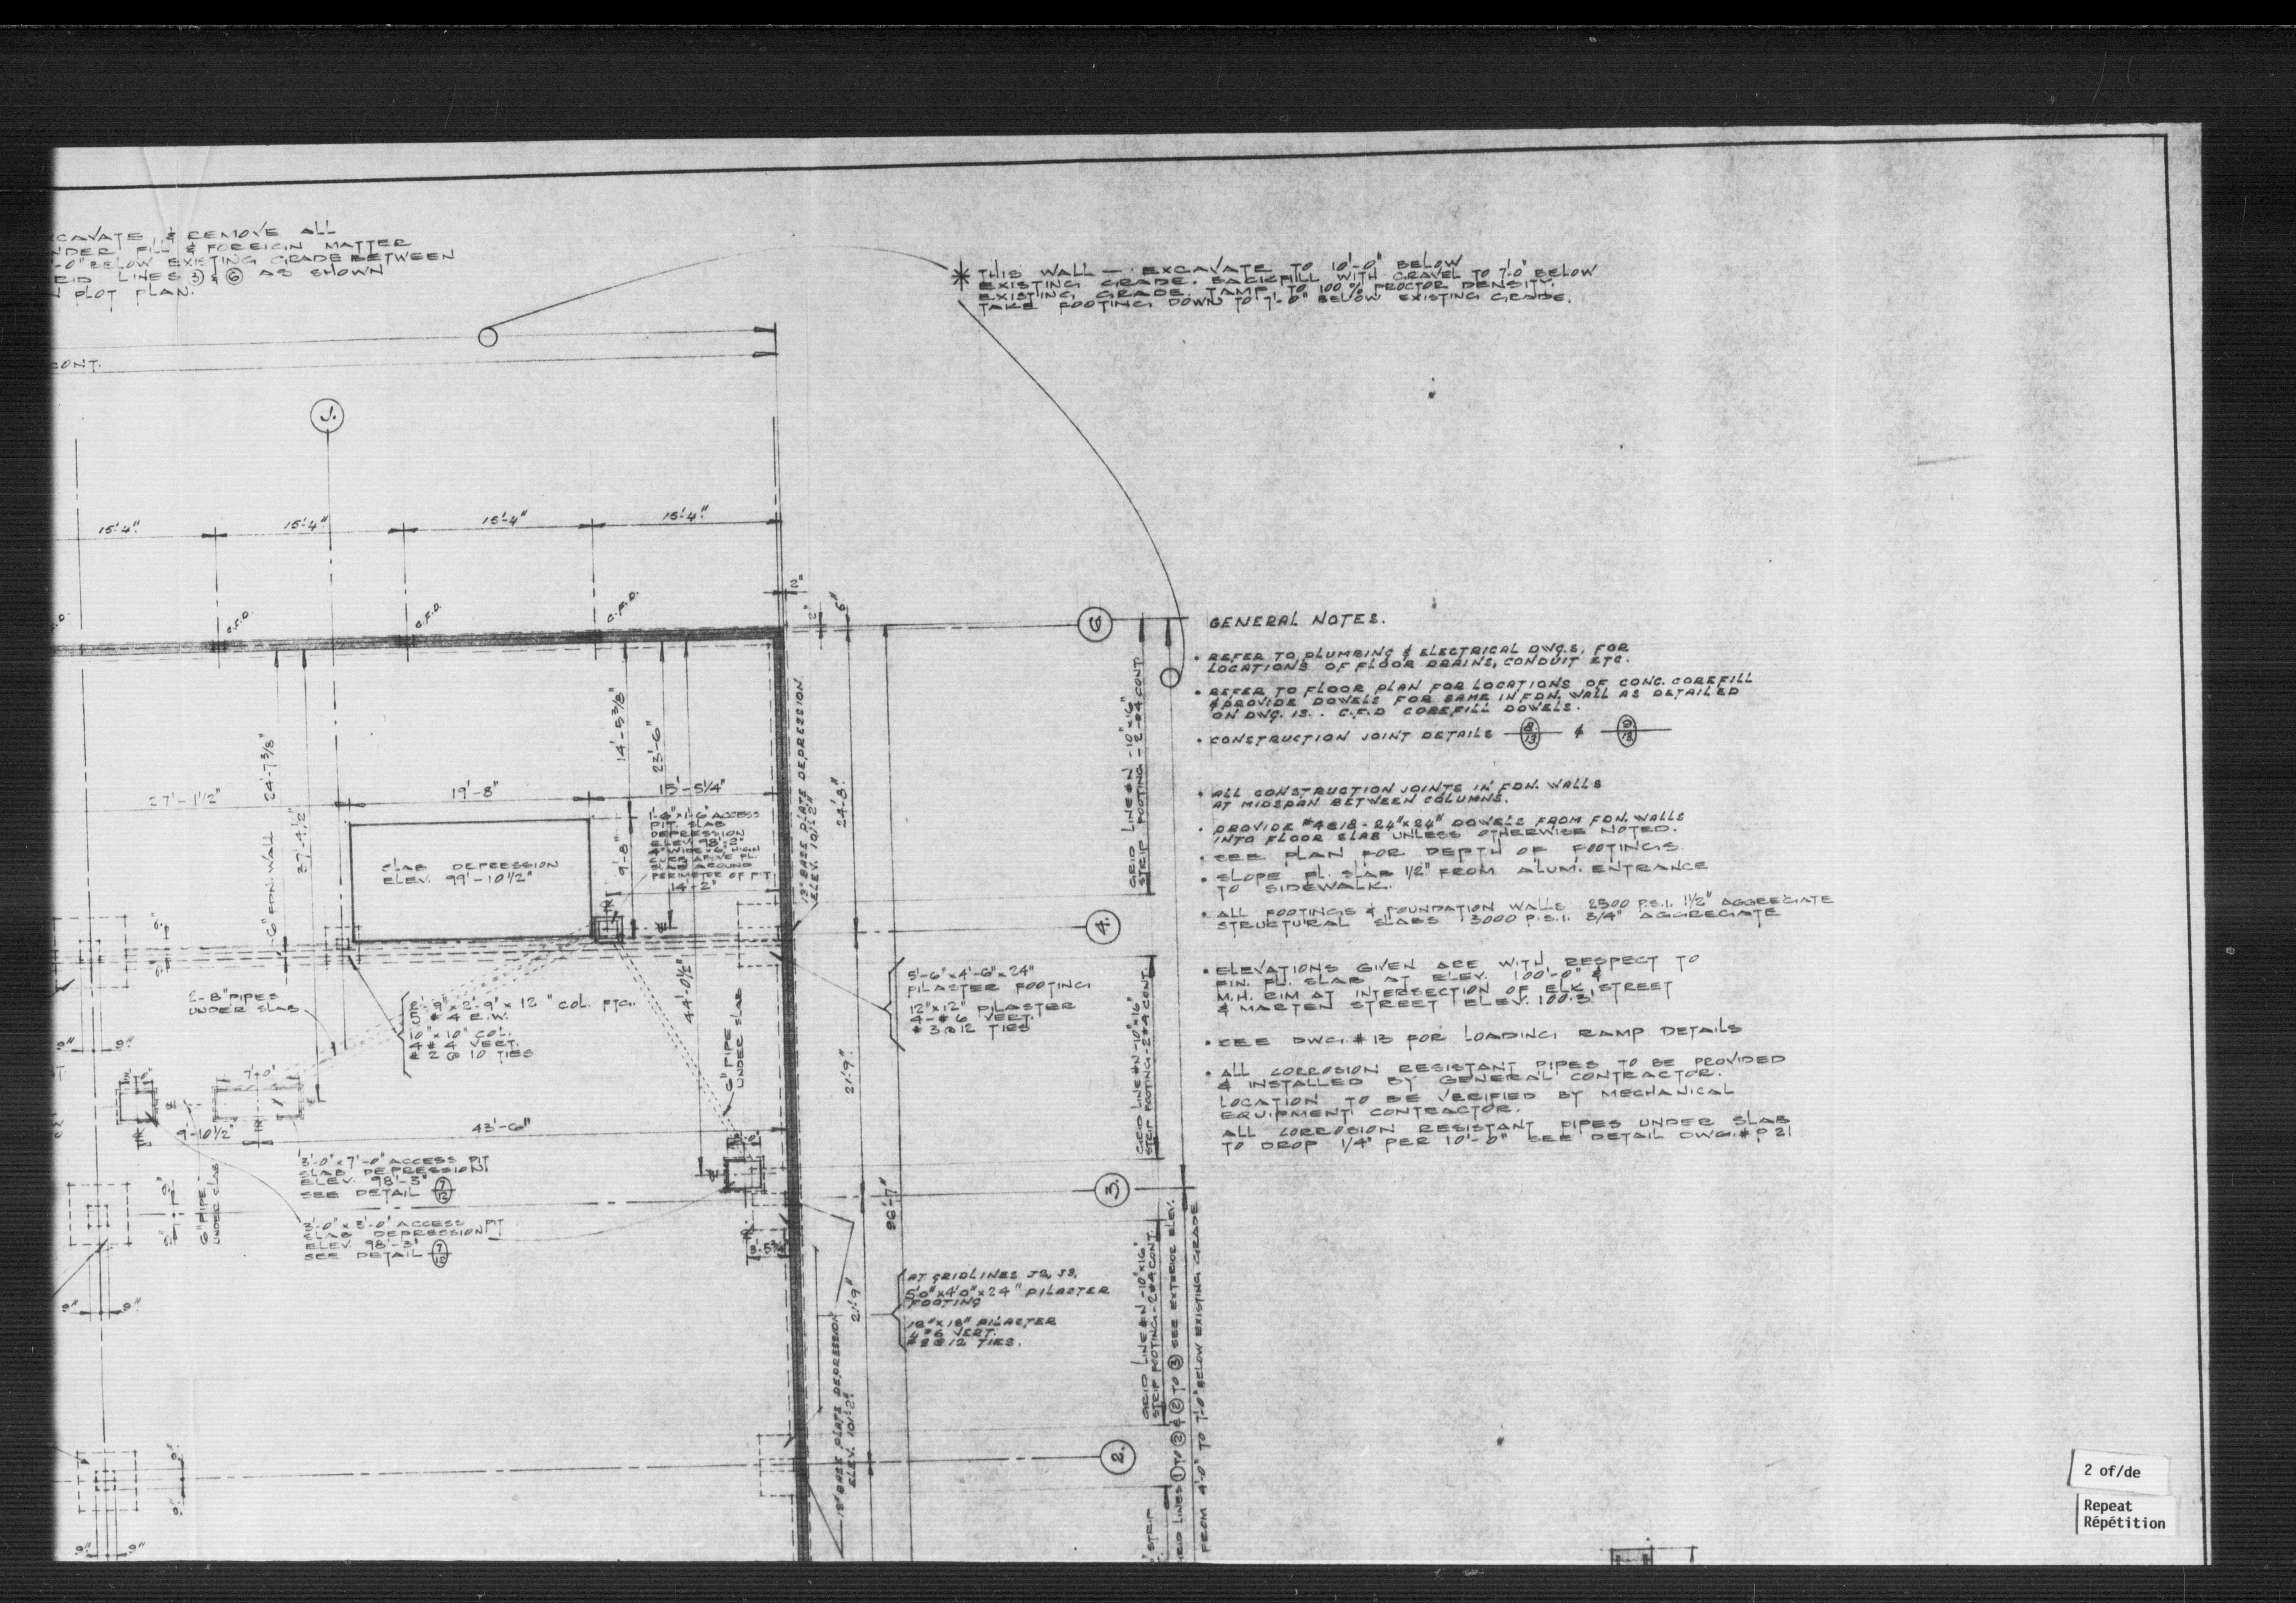 CAVATE & REMOVE ALL
NDER FILL & FOREIGN MATTER
'-0" BELOW EXISTING GRADE BETWEEN
RID LINES 3 & 6 AS SHOWN
PLOT PLAN.
CONT.
J.
* THIS WALL — EXCAVATE TO 10'-0" BELOW
EXISTING GRADE. BACKFILL WITH GRAVEL TO 7'-0" BELOW
EXISTING GRADE. TAMP TO 100% PROCTOR DENSITY.
TAKE FOOTING DOWN TO 7'-0" BELOW EXISTING GRADE.
15'-4"
15'-4"
15'-4"
15'-4"
C.F.D.
C.F.D.
C.F.D.
2"
2"
24'-7 3/8"
37'-4 1/2"
14'-5 3/8"
23'-6"
27'-1 1/2"
19'-8"
15'-5 1/4"
SLAB DEPRESSION
ELEV. 99'-10 1/2"
1'-6" x 1'-6" ACCESS
PIT. SLAB
DEPRESSION
ELEV. 98'-2"
PERIMETER OF PIT
14'-2"
9'-8"
6" FDN. WALL
13" BASE PLATE DEPRESSION
24'-8"
2-8" PIPES
UNDER SLAB
2'-9" x 12" COL. FTG.
#4 E.W.
10" x 10" COL.
4 #4 VERT.
#2 @ 10 TIES
44'-0 1/2"
6" PIPE
UNDER SLAB
5'-6" x 4'-6" x 24"
PILASTER FOOTING
12" x 12" PILASTER
4-#6 VERT.
#3 @ 12 TIES
21'-9"
7'-0"
9'-10 1/2"
43'-6"
6" PIPE
UNDER SLAB
3'-0" x 7'-0" ACCESS PIT
SLAB DEPRESSION
ELEV. 98'-3"
SEE DETAIL 7/12
3'-0" x 3'-0" ACCESS PIT
SLAB DEPRESSION
ELEV. 98'-3"
SEE DETAIL 7/12
96'-7"
21'-9"
AT GRIDLINES J2, J3,
5'0" x 4'0" x 24" PILASTER
FOOTING
18" x 18" PILASTER
4 #6 VERT.
#3 @ 12 TIES.
BASE PLATE DEPRESSION
4.
3.
2.
STRIP FOOTING - 2 #4 CONT.
STRIP FOOTING - 2 #4 CONT.
STRIP FOOTING - 2 #4 CONT.
GRID LINES 1 TO 2 & 2 TO 3 SEE EXTERIOR ELEV.
FROM 4'-0" TO 7'-0" BELOW EXISTING GRADE
STRIP
GENERAL NOTES.
• REFER TO PLUMBING & ELECTRICAL DWGS, FOR
LOCATIONS OF FLOOR DRAINS, CONDUIT ETC.
• REFER TO FLOOR PLAN FOR LOCATIONS OF CONC. COREFILL
& PROVIDE DOWELS FOR SAME IN FDN. WALL AS DETAILED
ON DWG. 13. . C.F.D COREFILL DOWELS.
• CONSTRUCTION JOINT DETAILS 8/13 & 9/13
• ALL CONSTRUCTION JOINTS IN FDN. WALLS
AT MIDSPAN BETWEEN COLUMNS.
• PROVIDE #4@18 - 24" x 24" DOWELS FROM FDN. WALLS
INTO FLOOR SLAB UNLESS OTHERWISE NOTED.
• SEE PLAN FOR DEPTH OF FOOTINGS.
• SLOPE FL. SLAB 1/2" FROM ALUM. ENTRANCE
TO SIDEWALK.
• ALL FOOTINGS & FOUNDATION WALLS 2500 P.S.I. 1 1/2" AGGREGATE
STRUCTURAL SLABS 3000 P.S.I. 3/4" AGGREGATE
• ELEVATIONS GIVEN ARE WITH RESPECT TO
FIN. FL. SLAB AT ELEV. 100'-0" &
M.H. RIM AT INTERSECTION OF ELK STREET
& MARTEN STREET ELEV. 100.3'
• SEE DWG. # 13 FOR LOADING RAMP DETAILS
• ALL CORROSION RESISTANT PIPES TO BE PROVIDED
& INSTALLED BY GENERAL CONTRACTOR.
LOCATION TO BE VERIFIED BY MECHANICAL
EQUIPMENT CONTRACTOR.
ALL CORROSION RESISTANT PIPES UNDER SLAB
TO DROP 1/4" PER 10'-0" SEE DETAIL DWG. # P 21
2 of/de
Repeat
Répétition